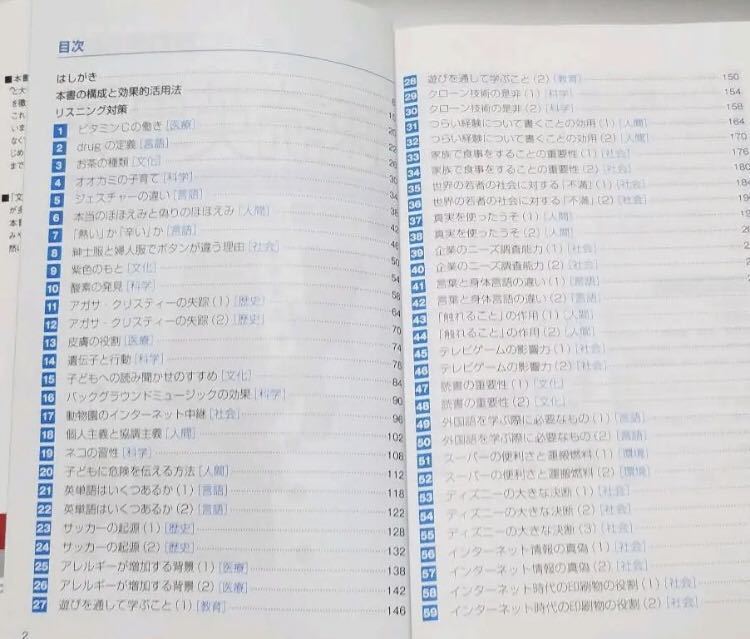 目次
はしがき
本書の構成と効果的活用法
リスニング対策
1 ビタミンCの働き [医療]
2 drug の定義 [言語]
3 お茶の種類 [文化]
4 オオカミの子育て [科学]
5 ジェスチャーの違い [言語]
6 本当のほほえみと偽りのほほえみ [人間]
7 「熱い」か「辛い」か [言語]
8 紳士服と婦人服でボタンが違う理由 [社会]
9 紫色のもと [文化]
10 酸素の発見 [科学]
11 アガサ・クリスティーの失踪 (1) [歴史]
12 アガサ・クリスティーの失踪 (2) [歴史] 70
13 皮膚の役割 [医療] 74
14 遺伝子と行動 [科学]
15 子どもへの読み聞かせのすすめ [文化] 84
16 バックグラウンドミュージックの効果 [科学] 90
17 動物園のインターネット中継 [社会] 96
18 個人主義と協調主義 [人間] 102
19 ネコの習性 [科学] 108
20 子どもに危険を伝える方法 [人間] 112
21 英単語はいくつあるか (1) [言語] 118
22 英単語はいくつあるか (2) [言語] 122
23 サッカーの起源 (1) [歴史] 128
24 サッカーの起源 (2) [歴史] 132
25 アレルギーが増加する背景 (1) [医療] 138
26 アレルギーが増加する背景 (2) [医療] 142
27 遊びを通して学ぶこと (1) [教育] 146
2
28 遊びを通して学ぶこと (2) [教育] 150
29 クローン技術の是非 (1) [科学] 154
30 クローン技術の是非 (2) [科学] 158
31 つらい経験について書くことの効用 (1) [人間] 164
32 つらい経験について書くことの効用 (2) [人間] 170
33 家族で食事をすることの重要性 (1) [社会] 176
34 家族で食事をすることの重要性 (2) [社会] 180
35 世界の若者の社会に対する「不満」(1) [社会]
36 世界の若者の社会に対する「不満」(2) [社会]
37 真実を使ったうそ (1) [人間]
38 真実を使ったうそ (2) [人間]
39 企業のニーズ調査能力 (1) [社会]
40 企業のニーズ調査能力 (2) [社会]
41 言葉と身体言語の違い (1) [言語]
42 言葉と身体言語の違い (2) [言語]
43 「触れること」の作用 (1) [人間]
44 「触れること」の作用 (2) [人間]
45 テレビゲームの影響力 (1) [社会]
46 テレビゲームの影響力 (2) [社会]
47 読書の重要性 (1) [文化]
48 読書の重要性 (2) [文化]
49 外国語を学ぶ際に必要なもの (1) [言語]
50 外国語を学ぶ際に必要なもの (2) [言語]
51 スーパーの便利さと運搬燃料 (1) [環境]
52 スーパーの便利さと運搬燃料 (2) [環境]
53 ディズニーの大きな決断 (1) [社会]
54 ディズニーの大きな決断 (2) [社会]
55 ディズニーの大きな決断 (3) [社会]
56 インターネット情報の真偽 (1) [社会]
57 インターネット情報の真偽 (2) [社会]
58 インターネット時代の印刷物の役割 (1) [社会]
59 インターネット時代の印刷物の役割 (2) [社会]